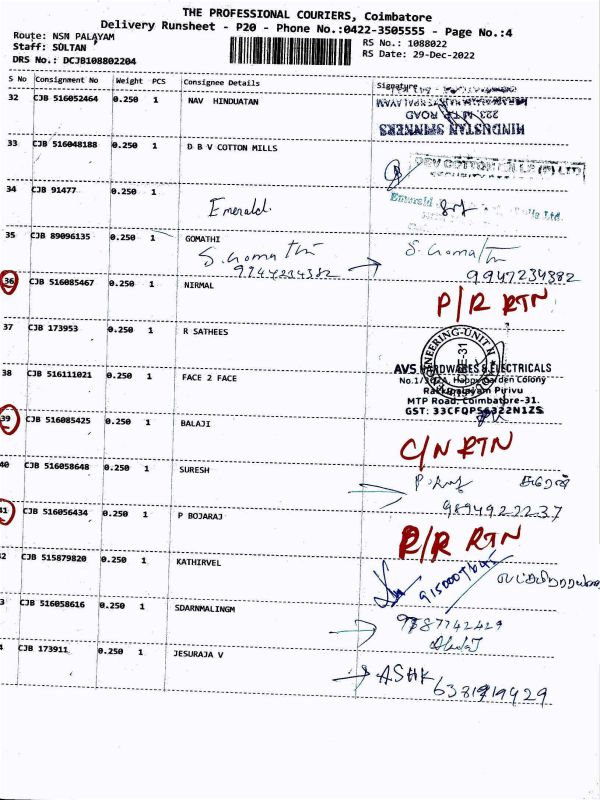 THE PROFESSIONAL COURIERS, Coimbatore
Delivery Runsheet - P20 - Phone No.:0422-3505555 - Page No.:4
Route: NSN PALAYAM
RS No.: 1088022
Staff: SULTAN
RS Date: 29-Dec-2022
DRS No.: DCJB108802204
S No Consignment No Weight PCS Consignee Details Signature
32 CJB 516052464 0.250 1 NAV HINDUATAN
223, M.T.P. ROAD
HINDUSTAN SPINNERS
33 CJB 516048188 0.250 1 D B V COTTON MILLS
DEV COTTON MILLS (P) LTD
SECURITY
34 CJB 91477 0.250 1
Emerald
Emerald Ltd.
35 CJB 89096135 0.250 1 GOMATHI
S. Gomathi S. Gomathi
9947234382 9947234382
36 CJB 516085467 0.250 1 NIRMAL
P/R RTN
37 CJB 173953 0.250 1 R SATHEES
ENGINEERING-UNIT II
38 CJB 516111021 0.250 1 FACE 2 FACE
AVS HARDWARES & ELECTRICALS
Happy Garden Colony
Rakkipalayam Pirivu
MTP Road, Coimbatore-31.
GST: 33CFQPS6322N1ZS
39 CJB 516085425 0.250 1 BALAJI
C/N RTN
40 CJB 516058648 0.250 1 SURESH
சுரேஷ்
9894922237
41 CJB 516056434 0.250 1 P BOJARAJ
R/R RTN
2 CJB 515879820 0.250 1 KATHIRVEL
3 CJB 516058616 0.250 1 SDARNMALINGM
9787742429
4 CJB 173911 0.250 1 JESURAJA V
ASHK
6381919429